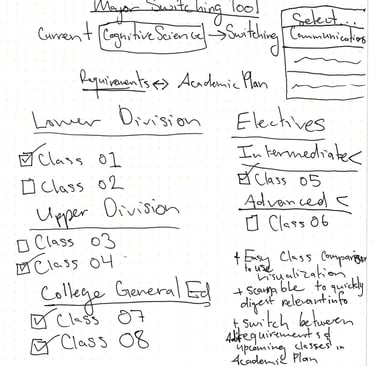 Major Switching Tool
Current Cognitive Science → Switching
Select...
Communication
Requirements ↔ Academic Plan
Lower Division
☑ Class 01
☐ Class 02
Upper Division
☐ Class 03
☑ Class 04
College General Ed
☑ Class 07
☑ Class 08
Electives
Intermediate <
☑ Class 05
Advanced <
☐ Class 06
+ Easy Class Comparison
to use visualization
+ scannable to quickly
digest relevant info
+ switch between
requirements &
upcoming classes in
Academic Plan